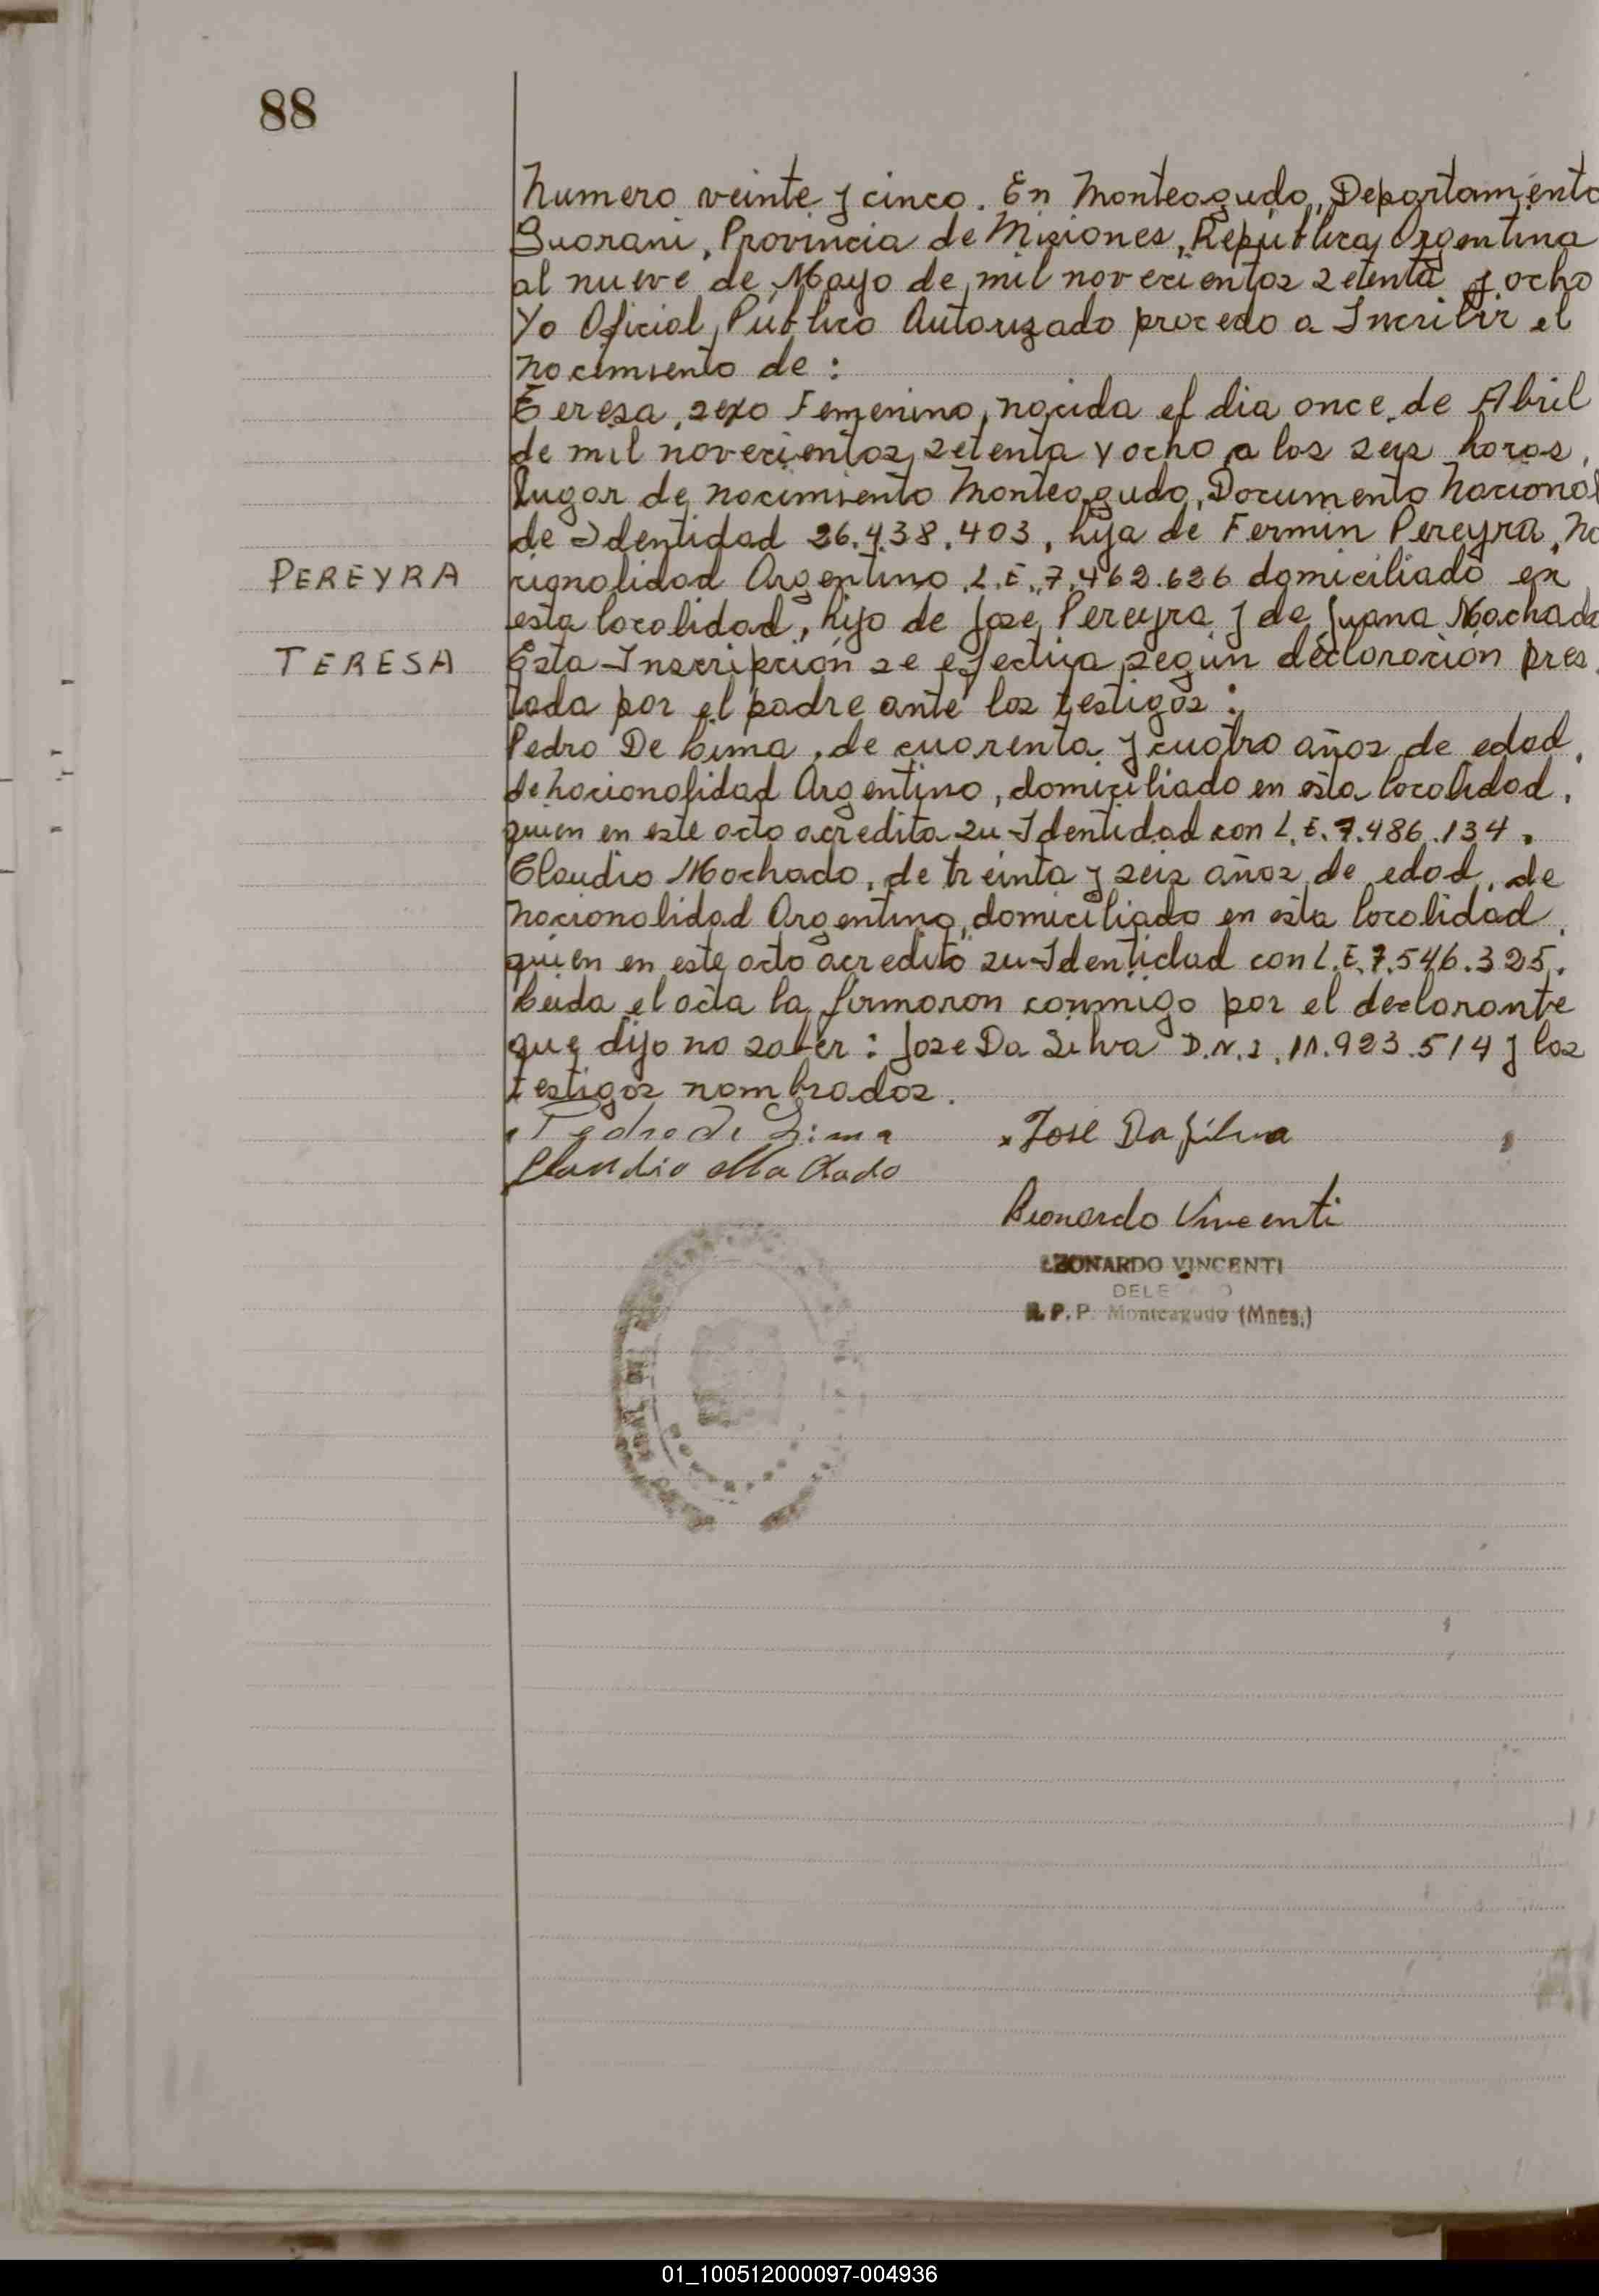 88
Numero veinte y cinco. En Monteagudo, Departamento
Guarani, Provincia de Misiones, República Argentina
al nueve de Mayo de mil novecientos setenta y ocho
Yo Oficial Público Autorizado procedo a Inscribir el
nacimiento de :
Teresa, sexo Femenino, nacida el dia once de Abril
de mil novecientos setenta y ocho a las seis horas,
lugar de nacimiento Monteagudo, Documento Nacional
de Identidad 26.438.403, hija de Fermin Pereyra, Na
PEREYRA
cionalidad Argentino, L.E. 7.462.626 domiciliado en
esta localidad, hijo de Jose Pereyra y de Juana Machado
TERESA
Esta Inscripción se efectúa según declaración pres
tada por el padre ante los testigos :
Pedro De Lima, de cuarenta y cuatro años de edad,
de nacionalidad Argentino, domiciliado en esta localidad,
quien en este acto acredita su Identidad con L.E. 7.486.134.
Claudio Machado, de treinta y seis años de edad, de
nacionalidad Argentino, domiciliado en esta localidad,
quien en este acto acreditó su Identidad con L.E. 7.546.325.
Leida el acta la firmaron conmigo por el declarante
que dijo no saber : Jose Da Silva D.N.I. 11.923.514 y los
testigos nombrados.
Pedro de Lima
x Jose Da Silva
Claudio Machado
Leonardo Vincenti
LEONARDO VINCENTI
R.P.P. Monteagudo (Mnes.)
01_100512000097-004936